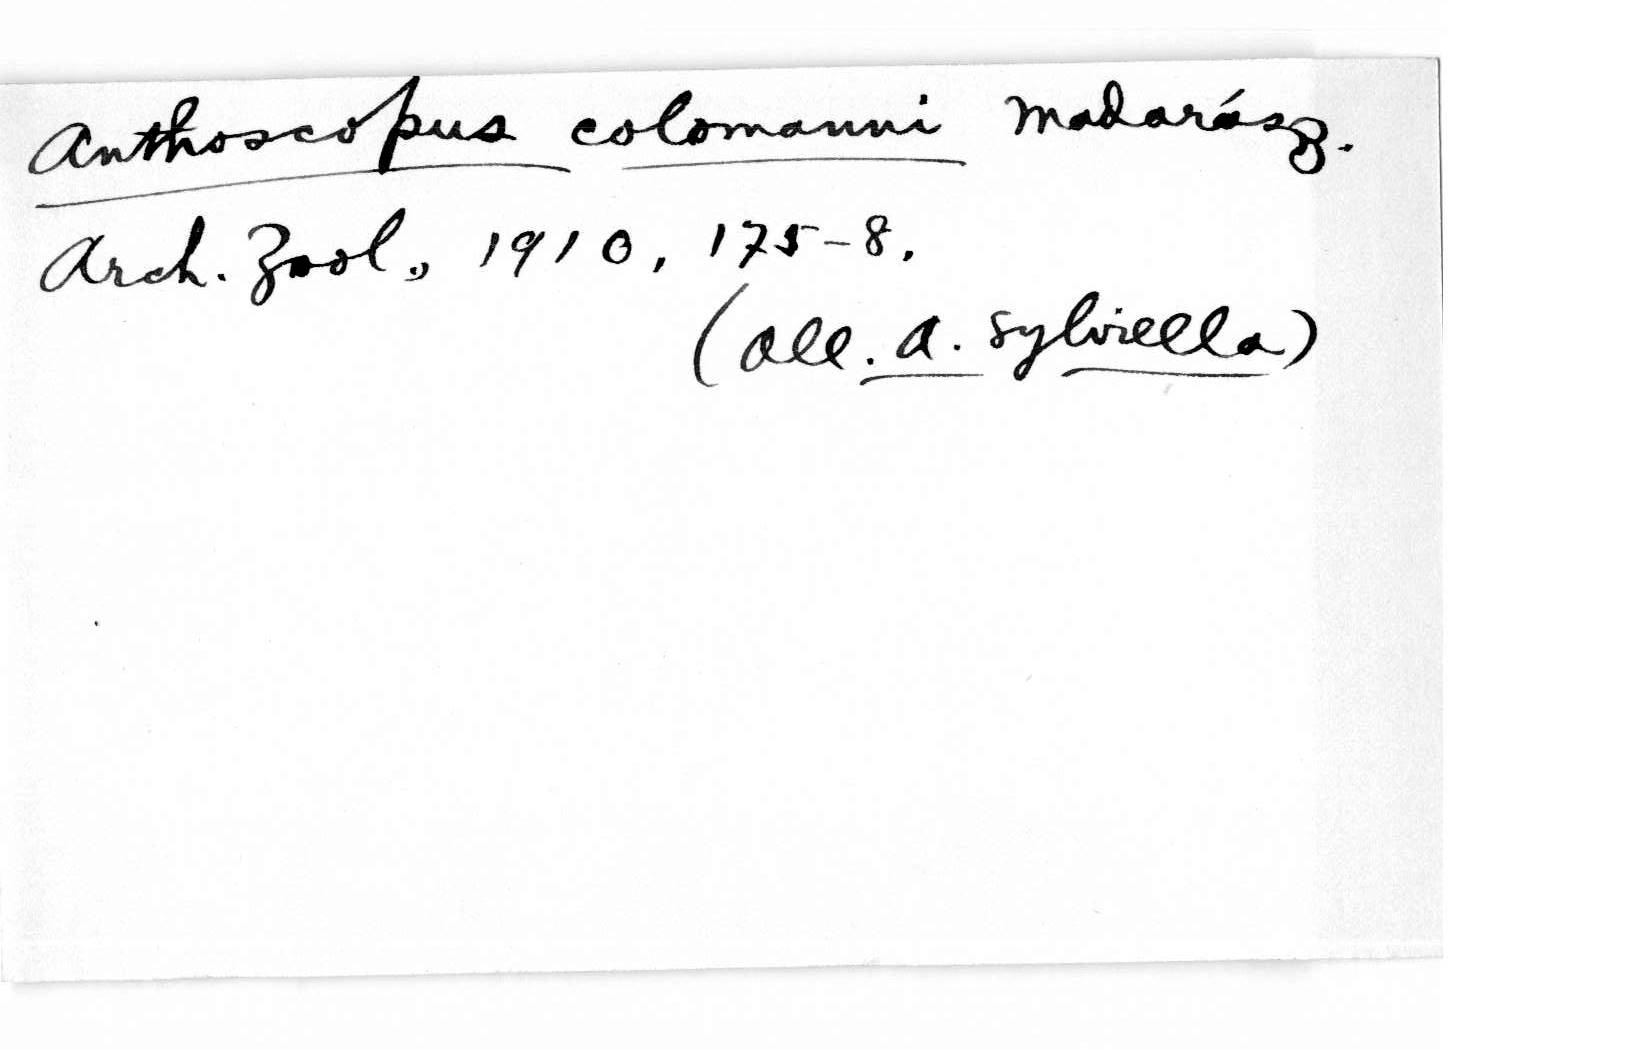 Anthoscopus colomanni Madarász.
Arch. Zool., 1910, 175-8.
(all. A. sylviella)